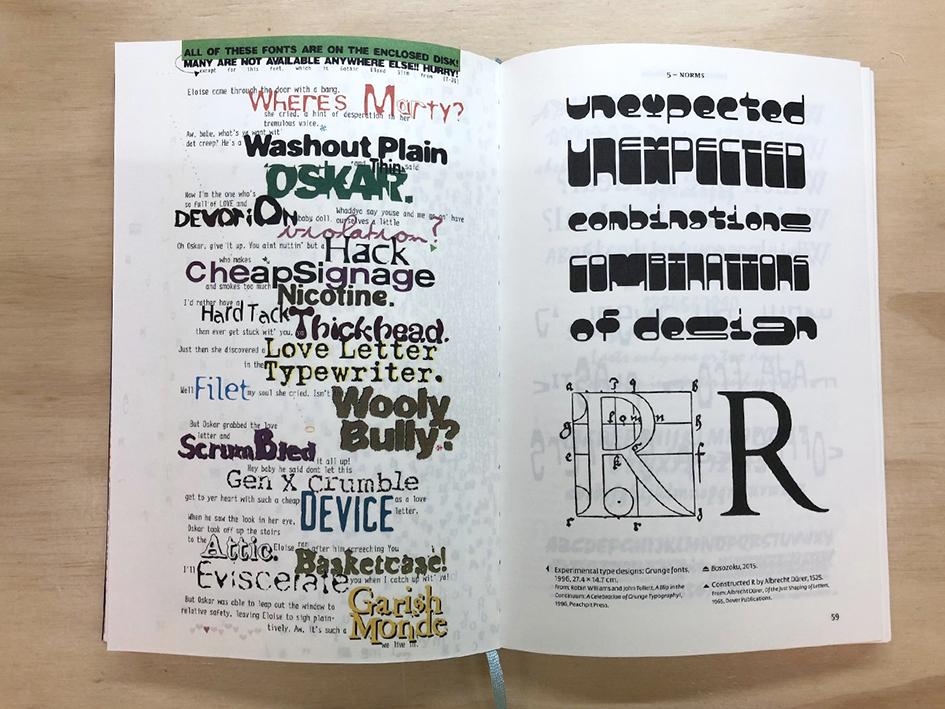 ALL OF THESE FONTS ARE ON THE ENCLOSED DISK!
MANY ARE NOT AVAILABLE ANYWHERE ELSE!! HURRY!
except for this font, which is Gothic Blond Slim from
Eloise came through the door with a bang.
Where's Marty?
she cried, a hint of desperation in her
tremulous voice.
Aw, babe, what's ya want wit'
dat creep? He's a
Washout Plain
and Thin said
OSKAR.
Now I'm the one who's
so full of LOVE and
DEVOTION
baby doll.
Whaddya say youse and me go an' have
ourselves a little
violation?
Oh Oskar, give it up. You aint nuttin' but a
Hack
who makes
CheapSignage
and smokes too much
Nicotine.
I'd rather have a
Hard Tack
than ever get stuck wit' you, ya
Thickhead.
Just then she discovered a
Love Letter
in the
Typewriter.
Well
Filet
my soul she cried. Isn't
Wooly
Bully?
But Oskar grabbed the love
letter and
Scrumbled
it all up!
Hey baby he said dont let this
Gen X Crumble
get to yer heart with such a cheap
DEVICE
as a love
letter.
When he saw the look in her eye,
Oskar took off up the stairs
to the
Attic.
Eloise ran after him screeching You
Basketcase!
I'll
Eviscerate
you when I catch up wit' ya!
But Oskar was able to leap out the window to
relative safety, leaving Eloise to sigh plain-
tively. Aw, it's such a
Garish
Monde
we live in.
5 – NORMS
unexpected
UNEXPECTED
combinations
COMBINATIONS
of design
R R
Experimental type designs: Grunge fonts,
1996, 27.4 × 14.7 cm.
From: Robin Williams and John Tollett, A Blip in the
Continuum: A Celebration of Grunge Typography!,
1996, Peachpit Press.
Bosozoku, 2015.
Constructed R by Albrecht Dürer, 1525.
From: Albrecht Dürer, Of the Just Shaping of Letters,
1965, Dover Publications.
59